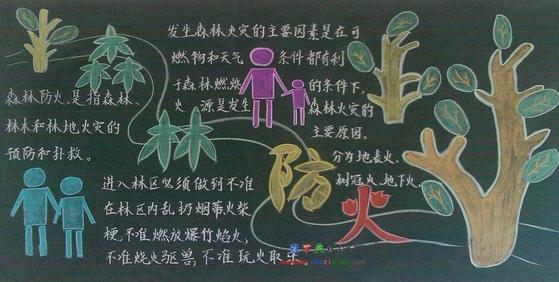 发生森林火灾的主要因素是在可
燃物和天气 条件都有利
于森林燃烧 的条件下,
火 源是发生 森林火灾的
主要原因。
森林防火。是指森林、
林木和林地火灾的
预防和扑救。
森林防火
分为地表火、
树冠火、地下火。
进入林区必须做到不准
在林区内乱扔烟蒂、火柴
梗,不准燃放爆竹焰火,
不准烧火驱兽,不准玩火取乐。